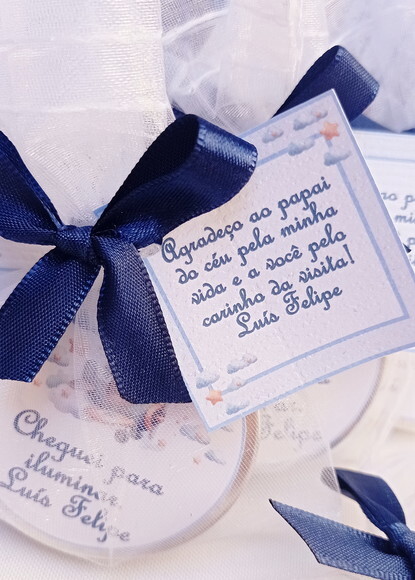 Agradeço ao papai
do céu pela minha
vida e a você pelo
carinho da visita!
Luís Felipe
Cheguei para
iluminar.
Luís Felipe
Felipe